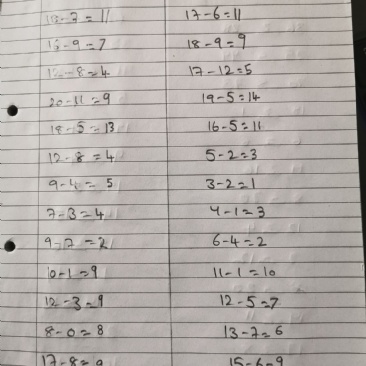 18-7=11 17-6=11
16-9=7 18-9=9
12-8=4 17-12=5
20-11=9 19-5=14
18-5=13 16-5=11
12-8=4 5-2=3
9-4=5 3-2=1
7-3=4 4-1=3
9-7=2 6-4=2
10-1=9 11-1=10
12-3=9 12-5=7
8-0=8 13-7=6
17-8=9 15-6=9